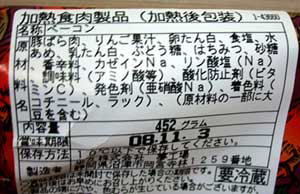 加熱食肉製品（加熱後包装）
名称 ベーコン
原材料 豚ばら肉、りんご果汁、卵たん白、食塩、水あめ、乳たん白、ぶどう糖、はちみつ、砂糖
香辛料、カゼインNa、リン酸塩（Na）、
調味料（アミノ酸等）、酸化防止剤（ビタミンC）、発色剤（亜硝酸Na）、着色料（
コチニール、ラック）、（原材料の一部に大豆を含む）
内容量 452グラム
賞味期限 08.11. 3
保存方法 保存してください。
製造者 1259番地
要冷蔵